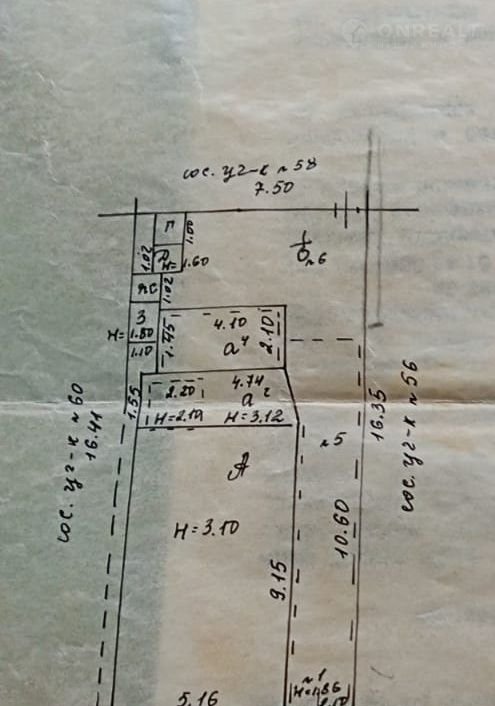 ONREALT
сос. уч-к №58
7.50
Г
1.00
1.02
H=
1.60
№6
1.02
3
H=
1.80
1.10
1.45
4.10
2.10
а⁴
1.55
2.20
4.74
а²
H=2.10
H=3.12
сос. уч-к №60
16.41
А
№5
16.35
сос. уч-к №56
H=3.10
10.60
9.15
№1
5.16